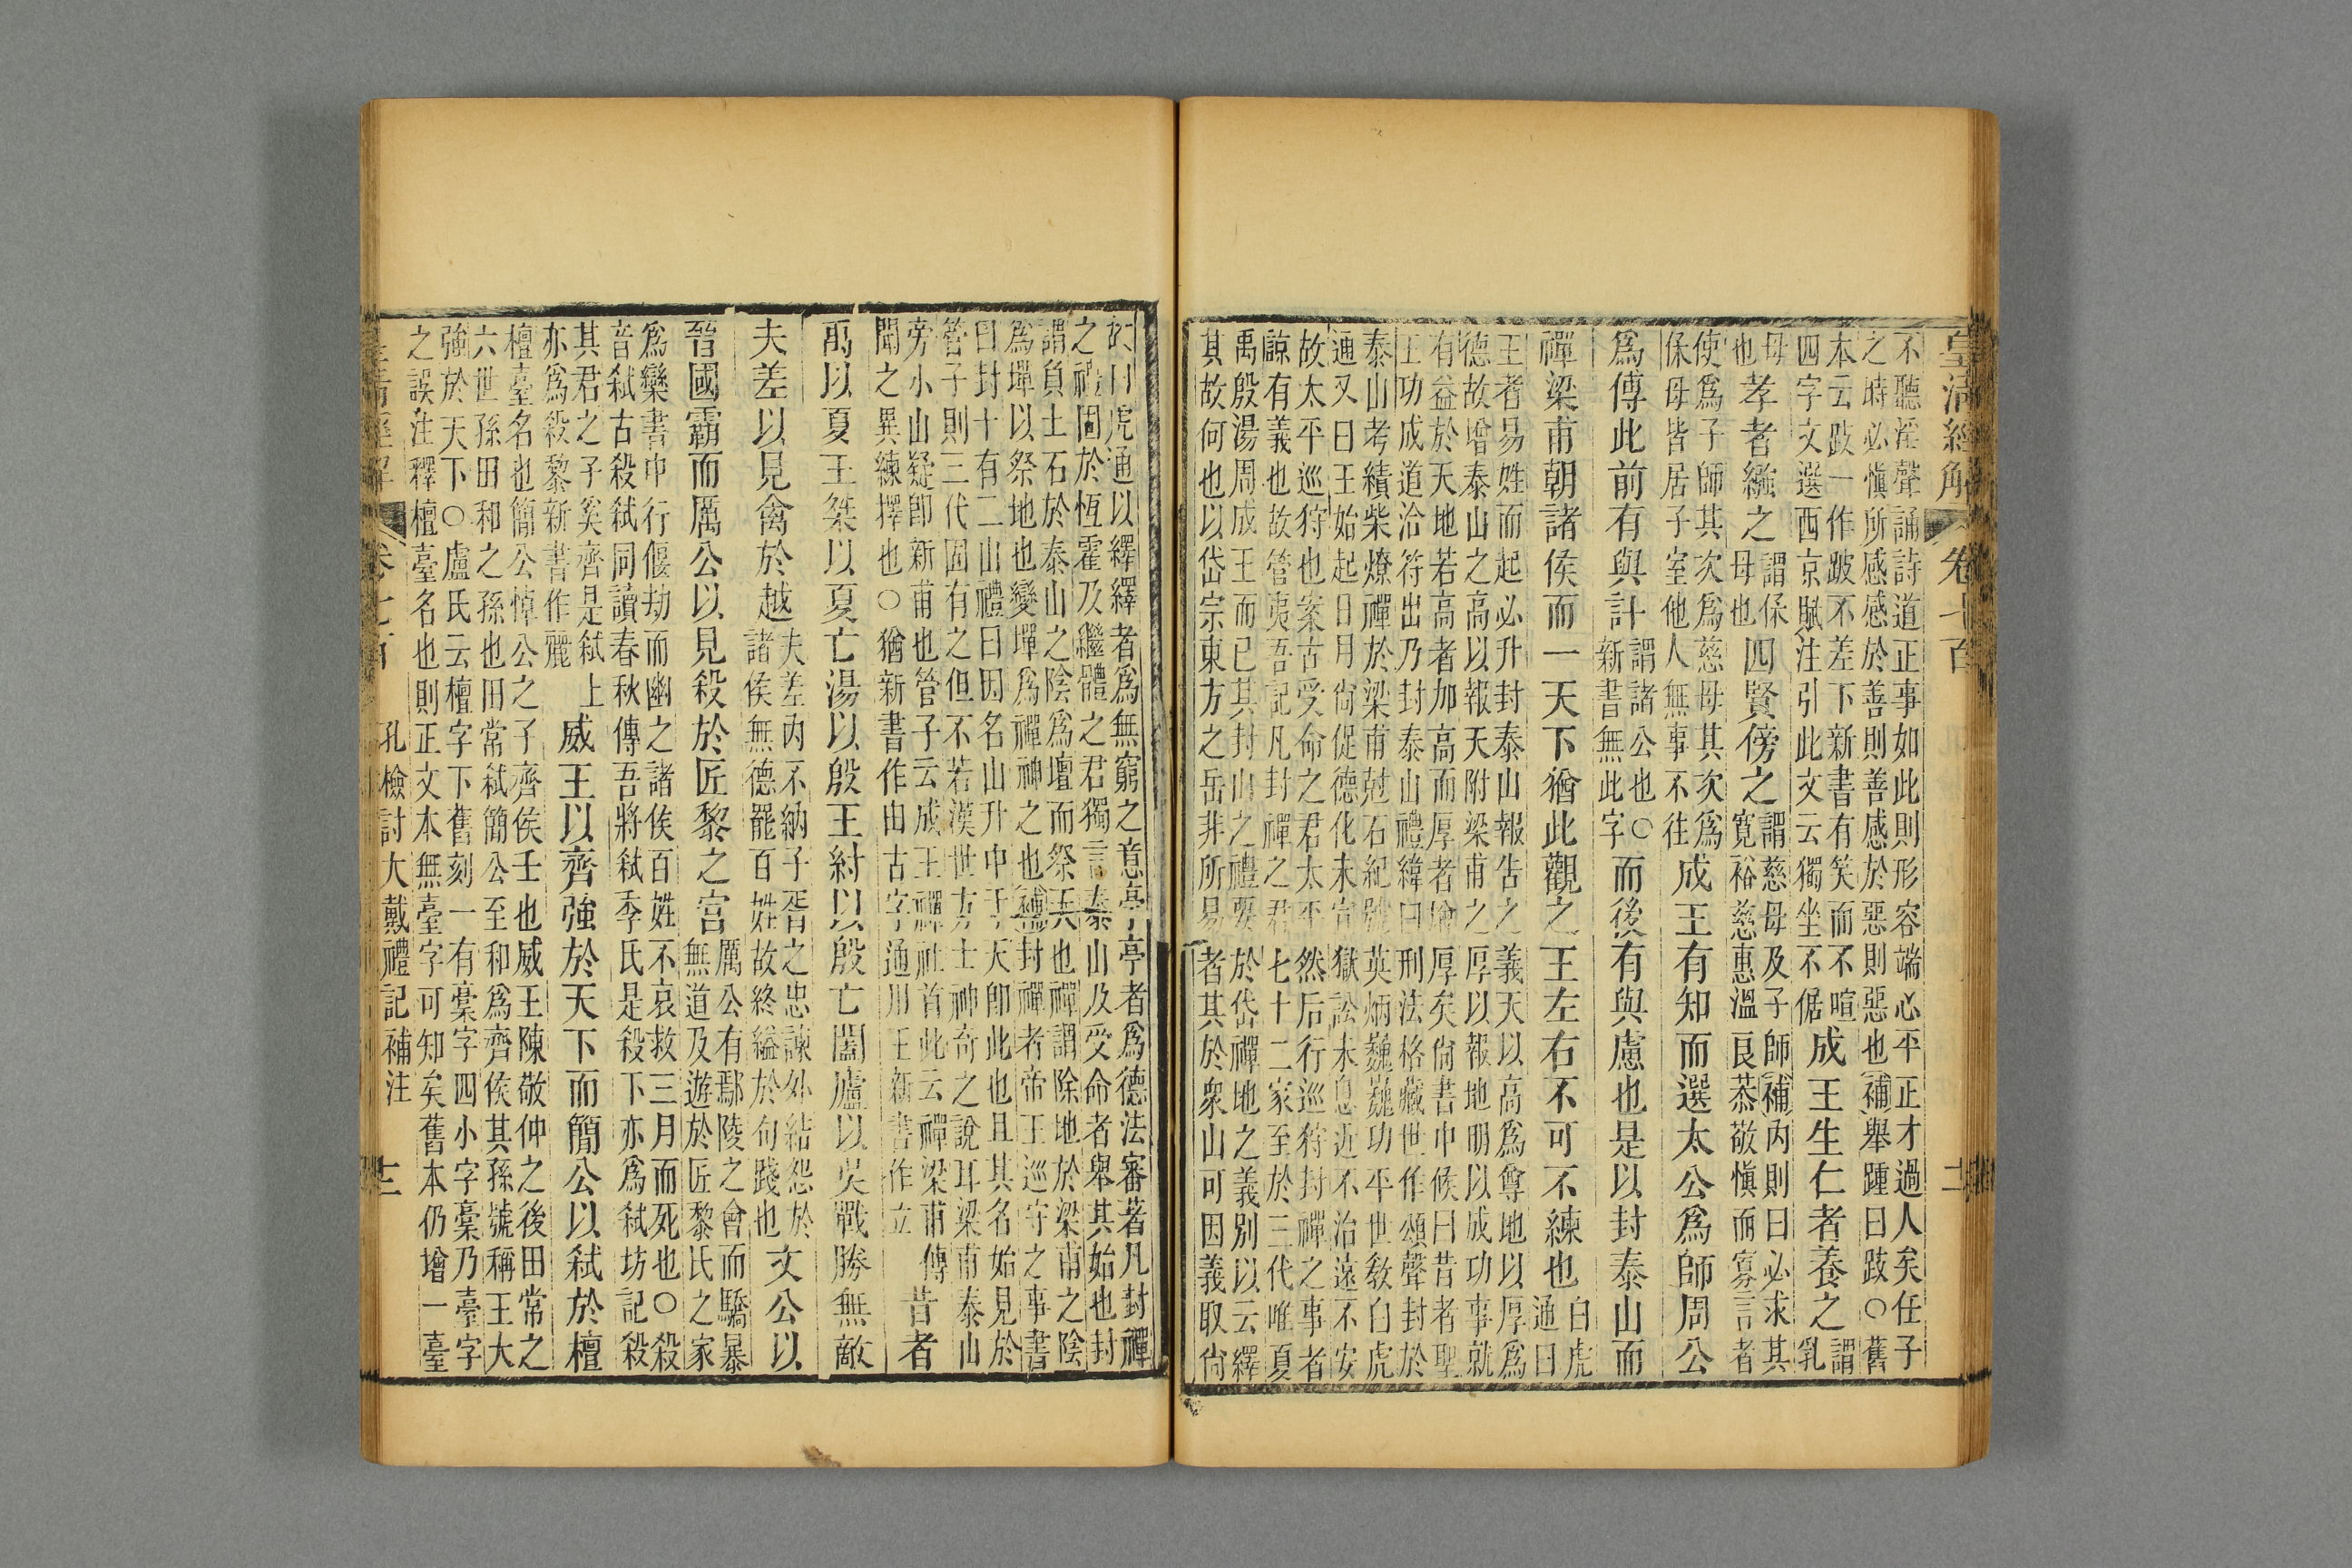 皇清經解 卷七百 十二
不聽淫聲誦詩道正事如此則形容端心平正才過人矣任子
之時必愼所感感於善則善感於惡則惡也補舉踵曰跂○舊
本云跂一作跛不差下新書有笑而不喧
四字文選西京賦注引此文云獨坐不倨成王生仁者養之謂乳
母也孝者繈之謂保母也四賢傍之謂慈母及子師補內則曰必求其寬裕慈惠溫良恭敬愼而寡言者
使爲子師其次爲慈母其次爲
保母皆居子室他人無事不往成王有知而選太公爲師周公
爲傅此前有與計謂諸公也○新書無此字而後有與慮也是以封泰山而
禪梁甫朝諸侯而一天下猶此觀之王左右不可不練也白虎通曰
王者易姓而起必升封泰山報告之義天以高爲尊地以厚爲
德故增泰山之高以報天附梁甫之厚以報地明以成功事就
有益於天地若高者加高而厚者增厚矣尙書中候曰昔者聖
王功成道洽符出乃封泰山禮緯曰刑法格藏世作頌聲封於
泰山考績柴燎禪於梁甫刻石紀號英炳巍巍功平世敎白虎
通又曰王始起日月尙促德化未宣獄訟未息近不治遠不安
故太平巡狩也案古受命之君太平然后行巡狩封禪之事者
諒有義也故管夷吾記凡封禪之君七十二家至於三代唯夏
禹殷湯周成王而已其封山之禮要於岱禪地之義別以云繹
其故何也以岱宗東方之岳非所易者其於衆山可因義取尙
故白虎通以繹繹者爲無窮之意亭亭者爲德法審著凡封禪
之禮固於恆霍及繼體之君獨言泰山及受命者舉其始也封
謂負土石於泰山之陰爲壇而祭天也禪謂除地於梁甫之陰
爲墠以祭地也變墠爲禪神之也補封禪者帝王巡守之事書
曰封十有二山禮曰因名山升中于天卽此也且其名始見於
管子則三代固有之但不若漢世方士神奇之說耳梁甫泰山
旁小山疑卽新甫也管子云成王禪社首此云禪梁甫傳
聞之異練擇也○猶新書作由古字通用王新書作立昔者
禹以夏王桀以夏亡湯以殷王紂以殷亡闔廬以吳戰勝無敵
夫差以見禽於越夫差內不納子胥之忠諫外結怨於諸侯無德罷百姓故終縊於句踐也文公以
晉國霸而厲公以見殺於匠黎之宮厲公有鄢陵之會而驕暴無道及遊於匠黎氏之家
爲欒書中行偃劫而幽之諸侯百姓不哀救三月而死也○殺
音弒古殺弒同讀春秋傳吾將弒季氏是殺下亦爲弒坊記殺
其君之子奚齊是弒上
亦爲殺黎新書作麗威王以齊強於天下而簡公以弒於檀
檀臺名也簡公悼公之子齊侯壬也威王陳敬仲之後田常之
六世孫田和之孫也田常弒簡公至和爲齊侯其孫號稱王大
強於天下○盧氏云檀字下舊刻一有臺字四小字臺乃臺字
之誤注釋檀臺名也則正文本無臺字可知矣舊本仍增一臺
皇清經解 卷七百 孔檢討大戴禮記補注 十三